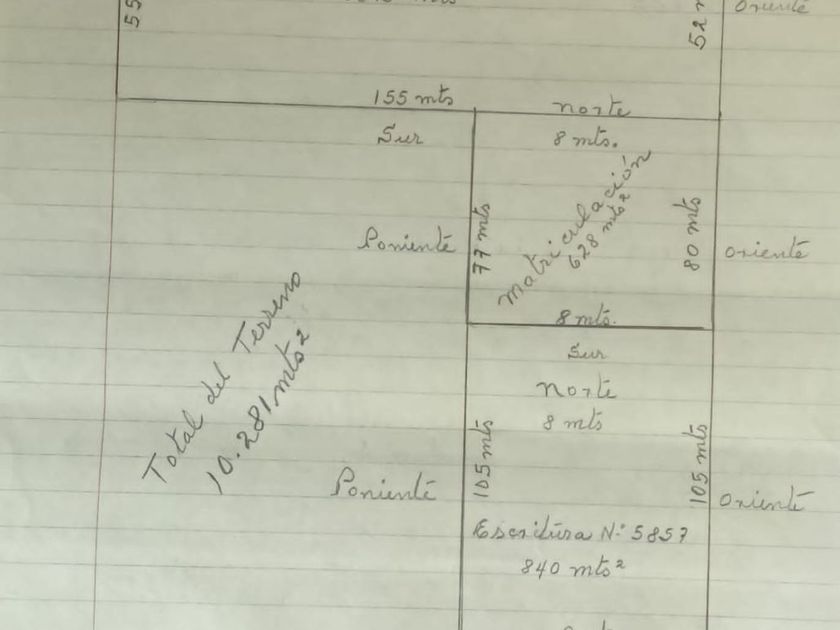 55
52
Oriente
155 mts
norte
Sur
8 mts.
Poniente
77 mts
matriculación
628 mts²
80 mts
oriente
8 mts.
Sur
norte
8 mts
Total del Terreno
10.281 mts²
Poniente
105 mts
105 mts
oriente
Escritura N: 5857
840 mts²